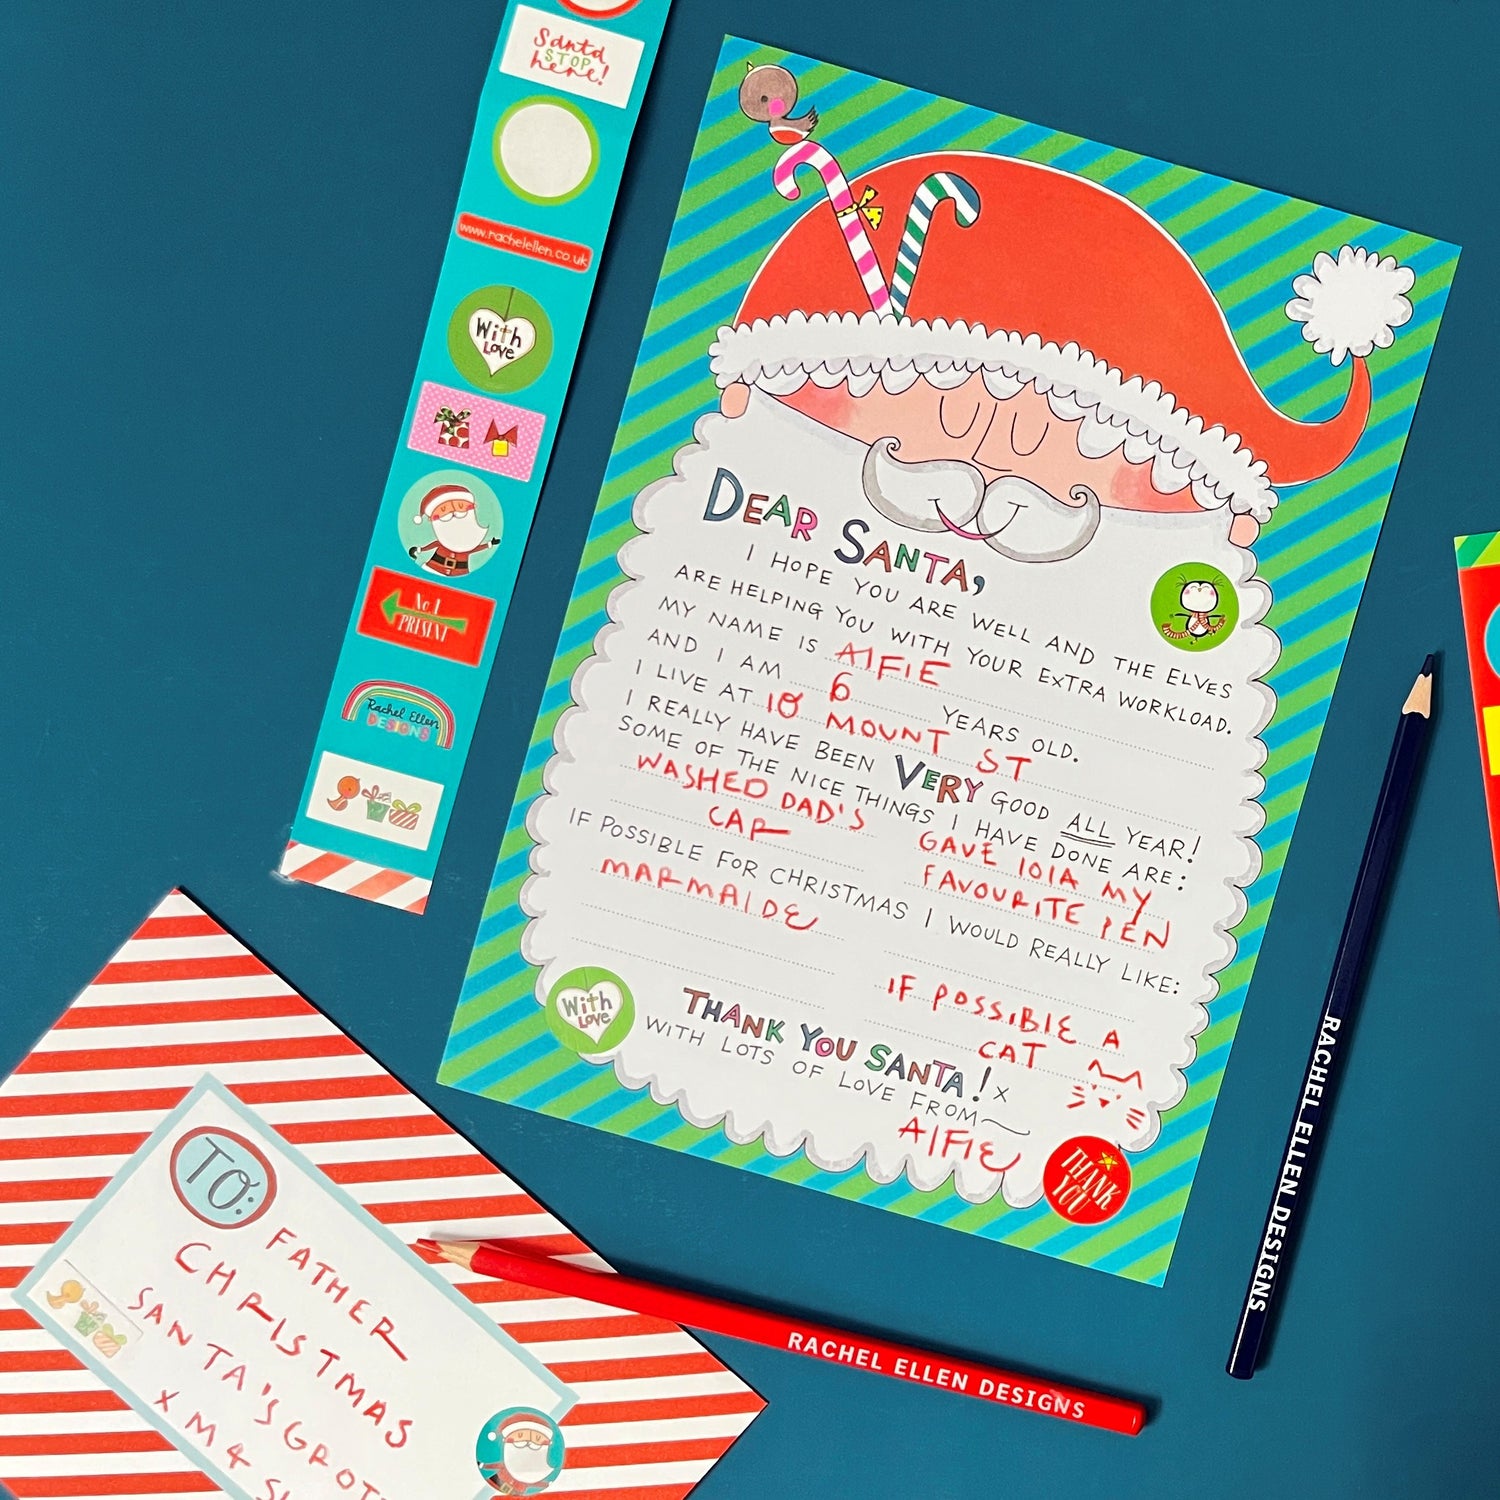 Santa
STOP
here!
www.rachelellen.co.uk
With
Love
No.1
PRESENT
Rachel Ellen
DESIGNS
DEAR SANTA,
I HOPE YOU ARE WELL AND THE ELVES
ARE HELPING YOU WITH YOUR EXTRA WORKLOAD.
MY NAME IS AlFIE
AND I AM 6 YEARS OLD.
I LIVE AT 18 MOUNT ST
I REALLY HAVE BEEN VERY GOOD ALL YEAR!
SOME OF THE NICE THINGS I HAVE DONE ARE:
WASHED DAD'S
CAR
GAVE lOlA MY
FAVOURITE PEN
IF POSSIBLE FOR CHRISTMAS I WOULD REALLY LIKE:
MARMAIDE
IF POSSIBlE A
CAT
THANK YOU SANTA! x
WITH LOTS OF LOVE FROM~
AlFIE
With
Love
THANK
YOU
TO:
FATHER
CHRISTMAS
SANTA'S GROT
X M4
RACHEL ELLEN DESIGNS
RACHEL ELLEN DESIGNS